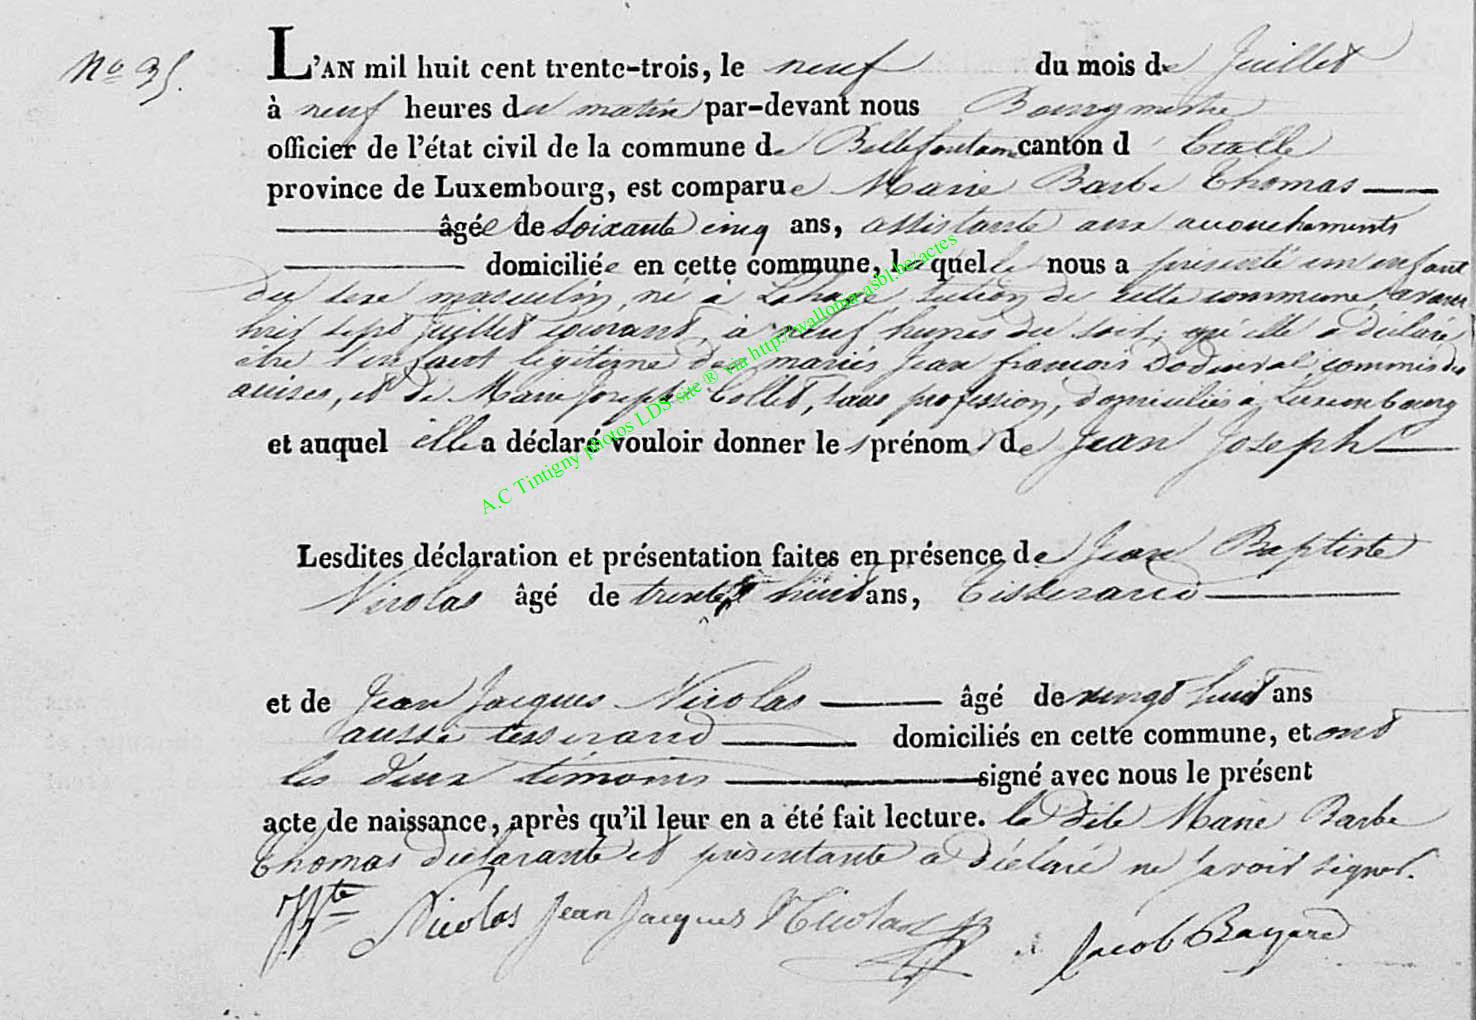 No 35.
L'AN mil huit cent trente-trois, le neuf du mois de Juillet
à neuf heures du matin par-devant nous Bourgmestre
officier de l'état civil de la commune de Bellefontaine canton d' Etalle
province de Luxembourg, est comparue Marie Barbe Thomas
âgée de soixante cinq ans, assistante aux accouchements
domiciliée en cette commune, laquelle nous a présenté un enfant
du sexe masculin, né à Lahage section de cette commune, avant
hier sept Juillet courant à neuf heures du soir; qu'elle a déclaré
etre l'enfant légitime des mariés Jean francois Dodinval, commis des
acises, et de Marie Joseph Collet, sans profession, domiciliés à Luxembourg
et auquel elle a déclaré vouloir donner les prénoms de Jean Joseph
A.C Tintigny photos LDS site ® via http://wallonia-asbl.be/actes
Lesdites déclaration et présentation faites en présence de Jean Baptiste
Nicolas âgé de trente huit ans, Tisserand
et de Jean Jacques Nicolas âgé de vingt huit ans
aussi tisserand domiciliés en cette commune, et ont
les deux témoins signé avec nous le présent
acte de naissance, après qu'il leur en a été fait lecture. la dite Marie Barbe
Thomas déclarante et présentante a déclaré ne savoir signer.
Nicolas Jean Jacques Nicolas Jacob Bayard